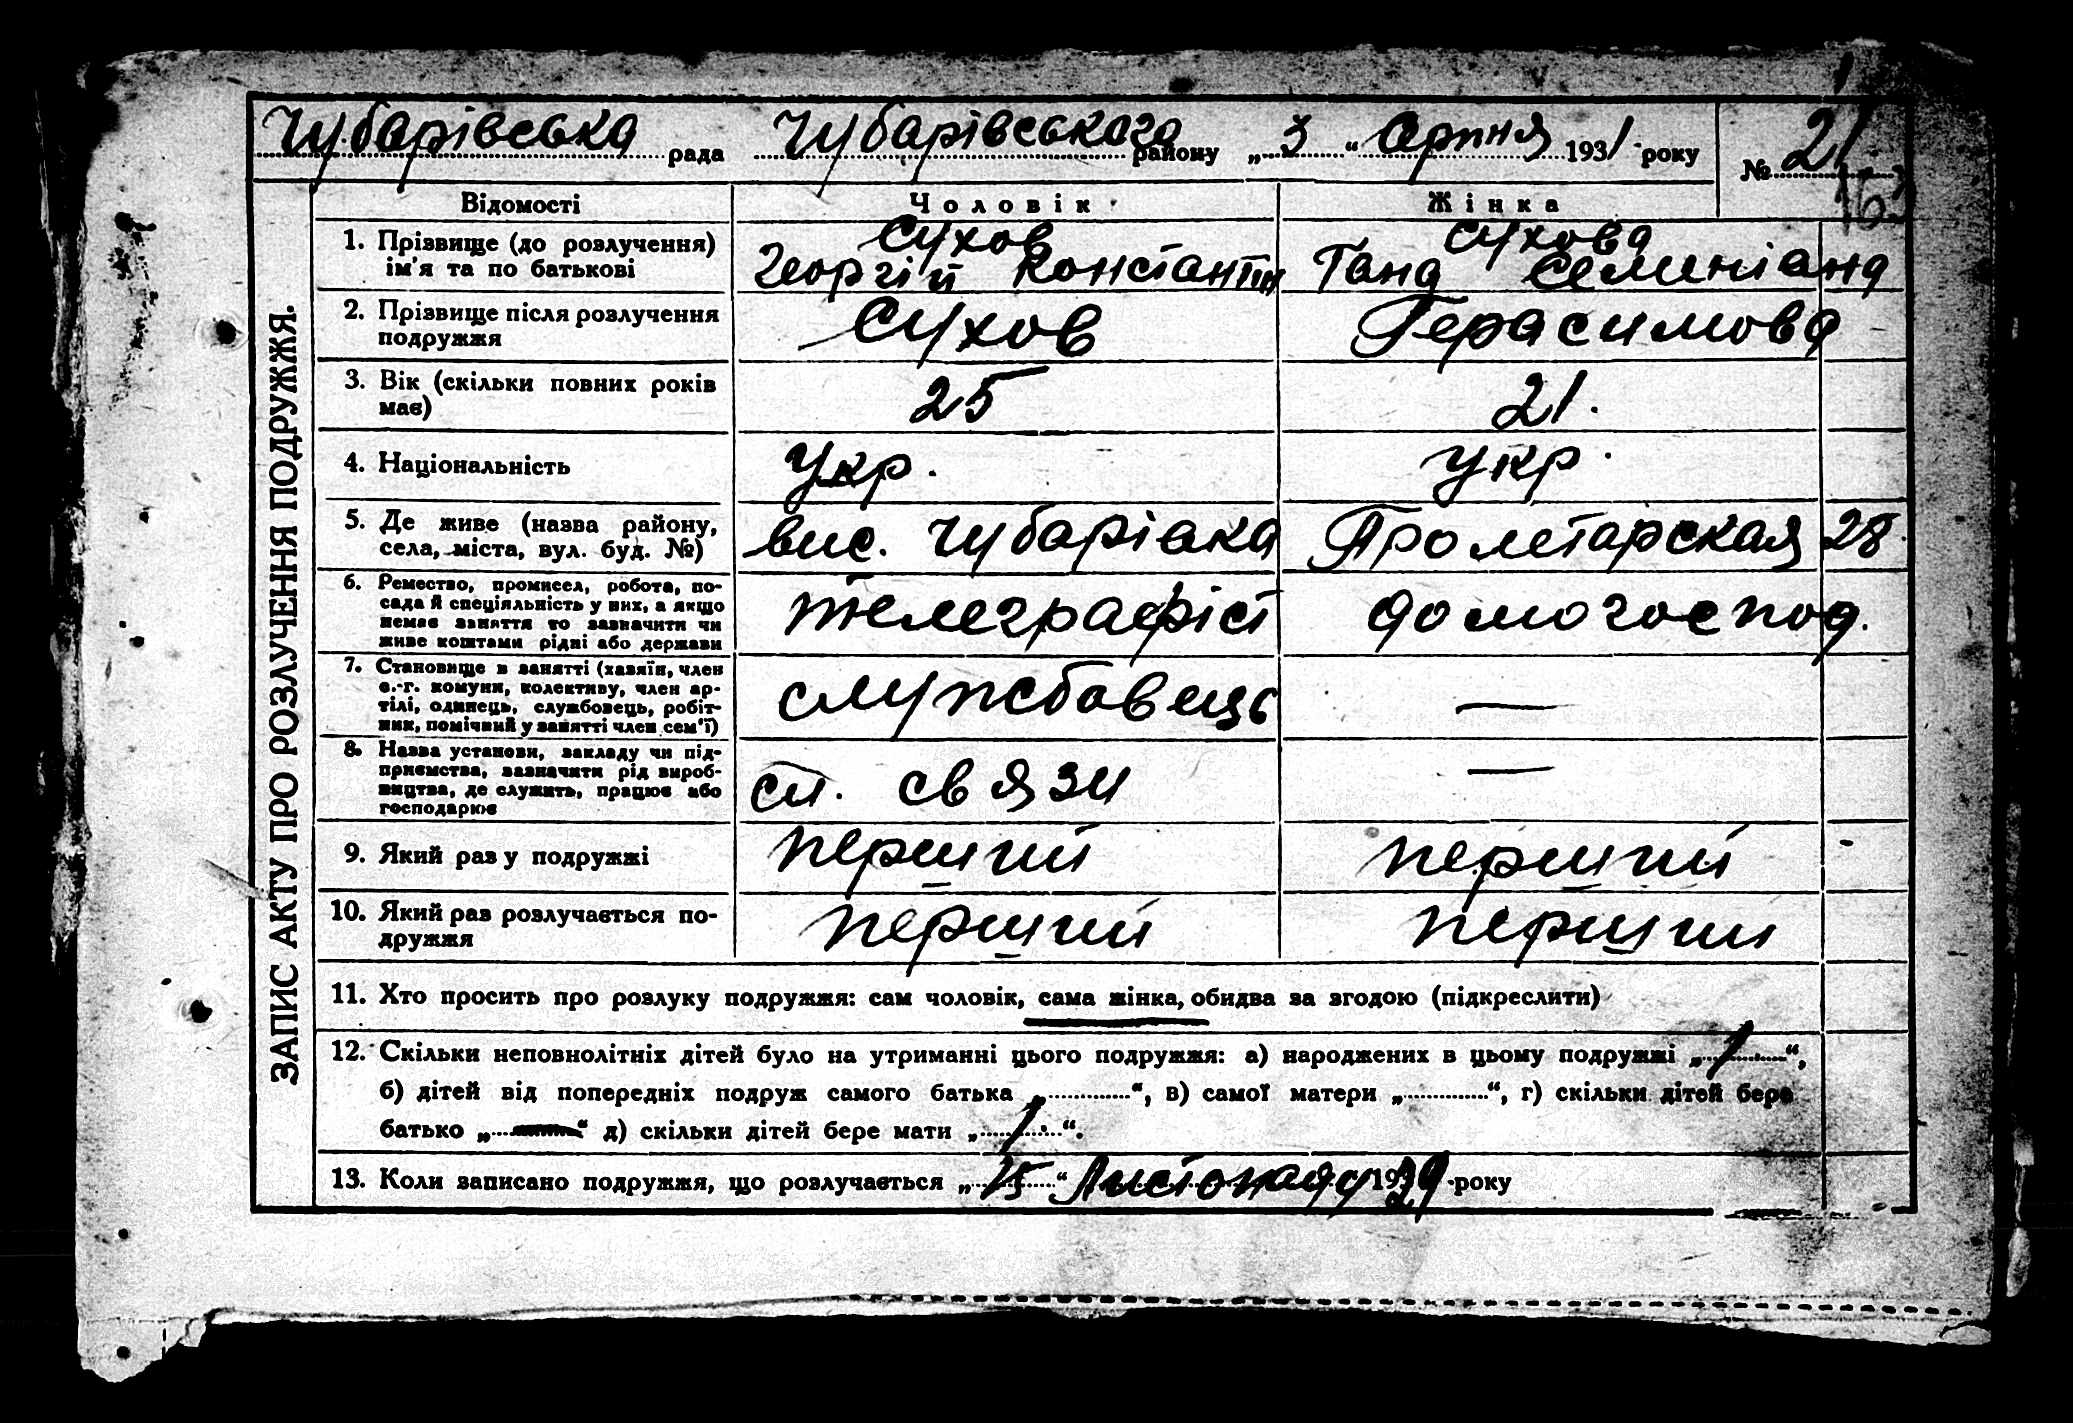 Чубарівська рада Чубарівського району „ 3 “ Серпня 1931 року № 21
163
ЗАПИС АКТУ ПРО РОЗЛУЧЕННЯ ПОДРУЖЖЯ.
Відомості Чоловік Жінка
1. Прізвище (до розлучення) ім'я та по батькові
Сухов
Георгій Константін
Сухова
Гана
2. Прізвище після розлучення подружжя
Сухов
Герасимова
3. Вік (скільки повних років має)
25
21.
4. Національність
Укр.
Укр.
5. Де живе (назва району, села, міста, вул. буд. №)
вис. Чубарівка
Пролетарская 28.
6. Ремество, промисел, робота, по-
сада й спеціяльність у них, а якщо
немає заняття то зазначити чи
живе коштами рідні або держави
телеграфіст
домогоспод.
7. Становище в занятті (хазяїн, член
с.-г. комуни, колективу, член ар-
тілі, одинець, службовець, робіт-
ник, помічний у занятті член сем'ї)
службовець
—
8. Назва установи, закладу чи під-
приємства, зазначити рід вироб-
ництва, де служить, працює або
господарює
связи
—
9. Який раз у подружжі
перший
перший
10. Який раз розлучається по-
дружжя
перший
перший
11. Хто просить про розлуку подружжя: сам чоловік, сама жінка, обидва за згодою (підкреслити)
12. Скільки неповнолітніх дітей було на утриманні цього подружжя: а) народжених в цьому подружжі „ 1 “,
б) дітей від попередніх подруж самого батька „ “, в) самої матери „ “, г) скільки дітей бере
батько „ — “ д) скільки дітей бере мати „ 1 “.
13. Коли записано подружжя, що розлучається „ 15 “ Листопада 1929 року